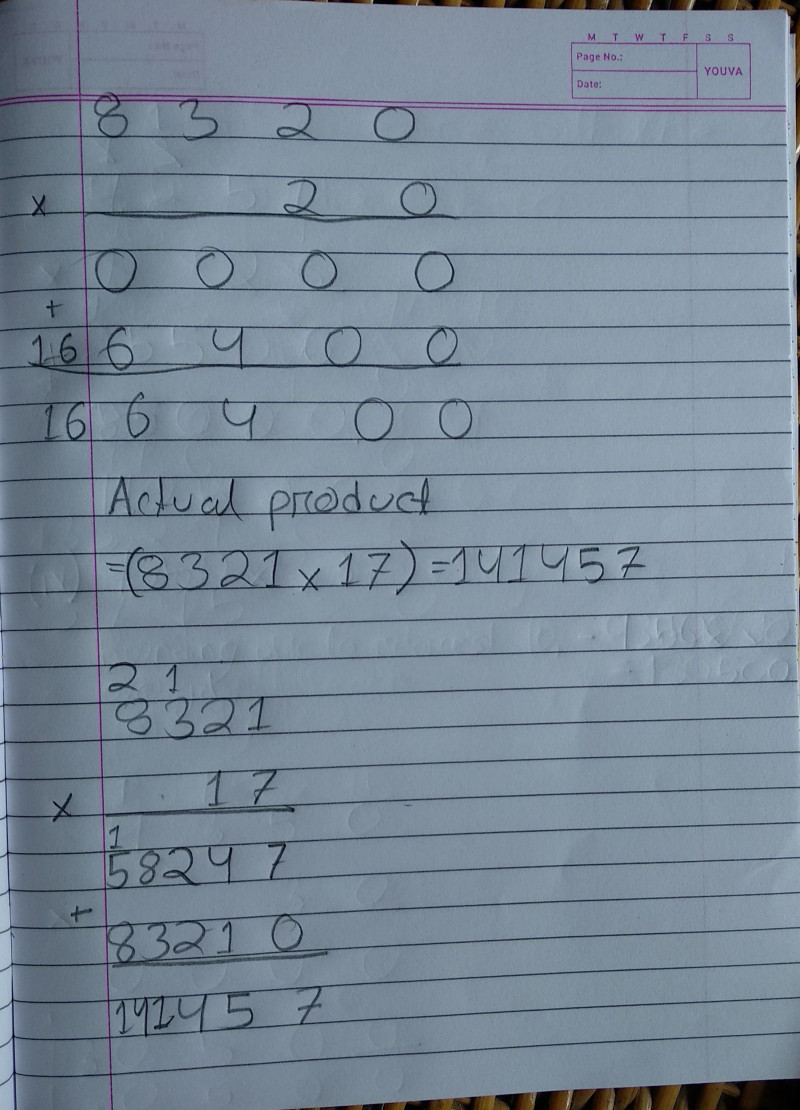 M T W T F S S
Page No.:
YOUVA
Date:
8 3 2 0
× 2 0
0 0 0 0
+
16 6 4 0 0
16 6 4 0 0
Actual product
=(8321×17)=141457
2 1
8321
× 17
1
58247
+
83210
141457